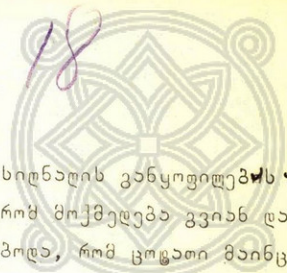 18
სიღნაღის განყოფილების
რომ მოქმედება გვიან და
ბოდა, რომ ცოტათი მაინც